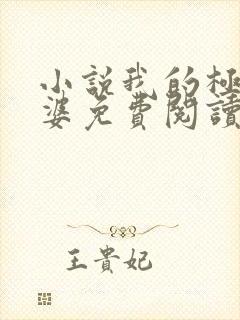 小説我的極
婆免費閱讀
王貴妃